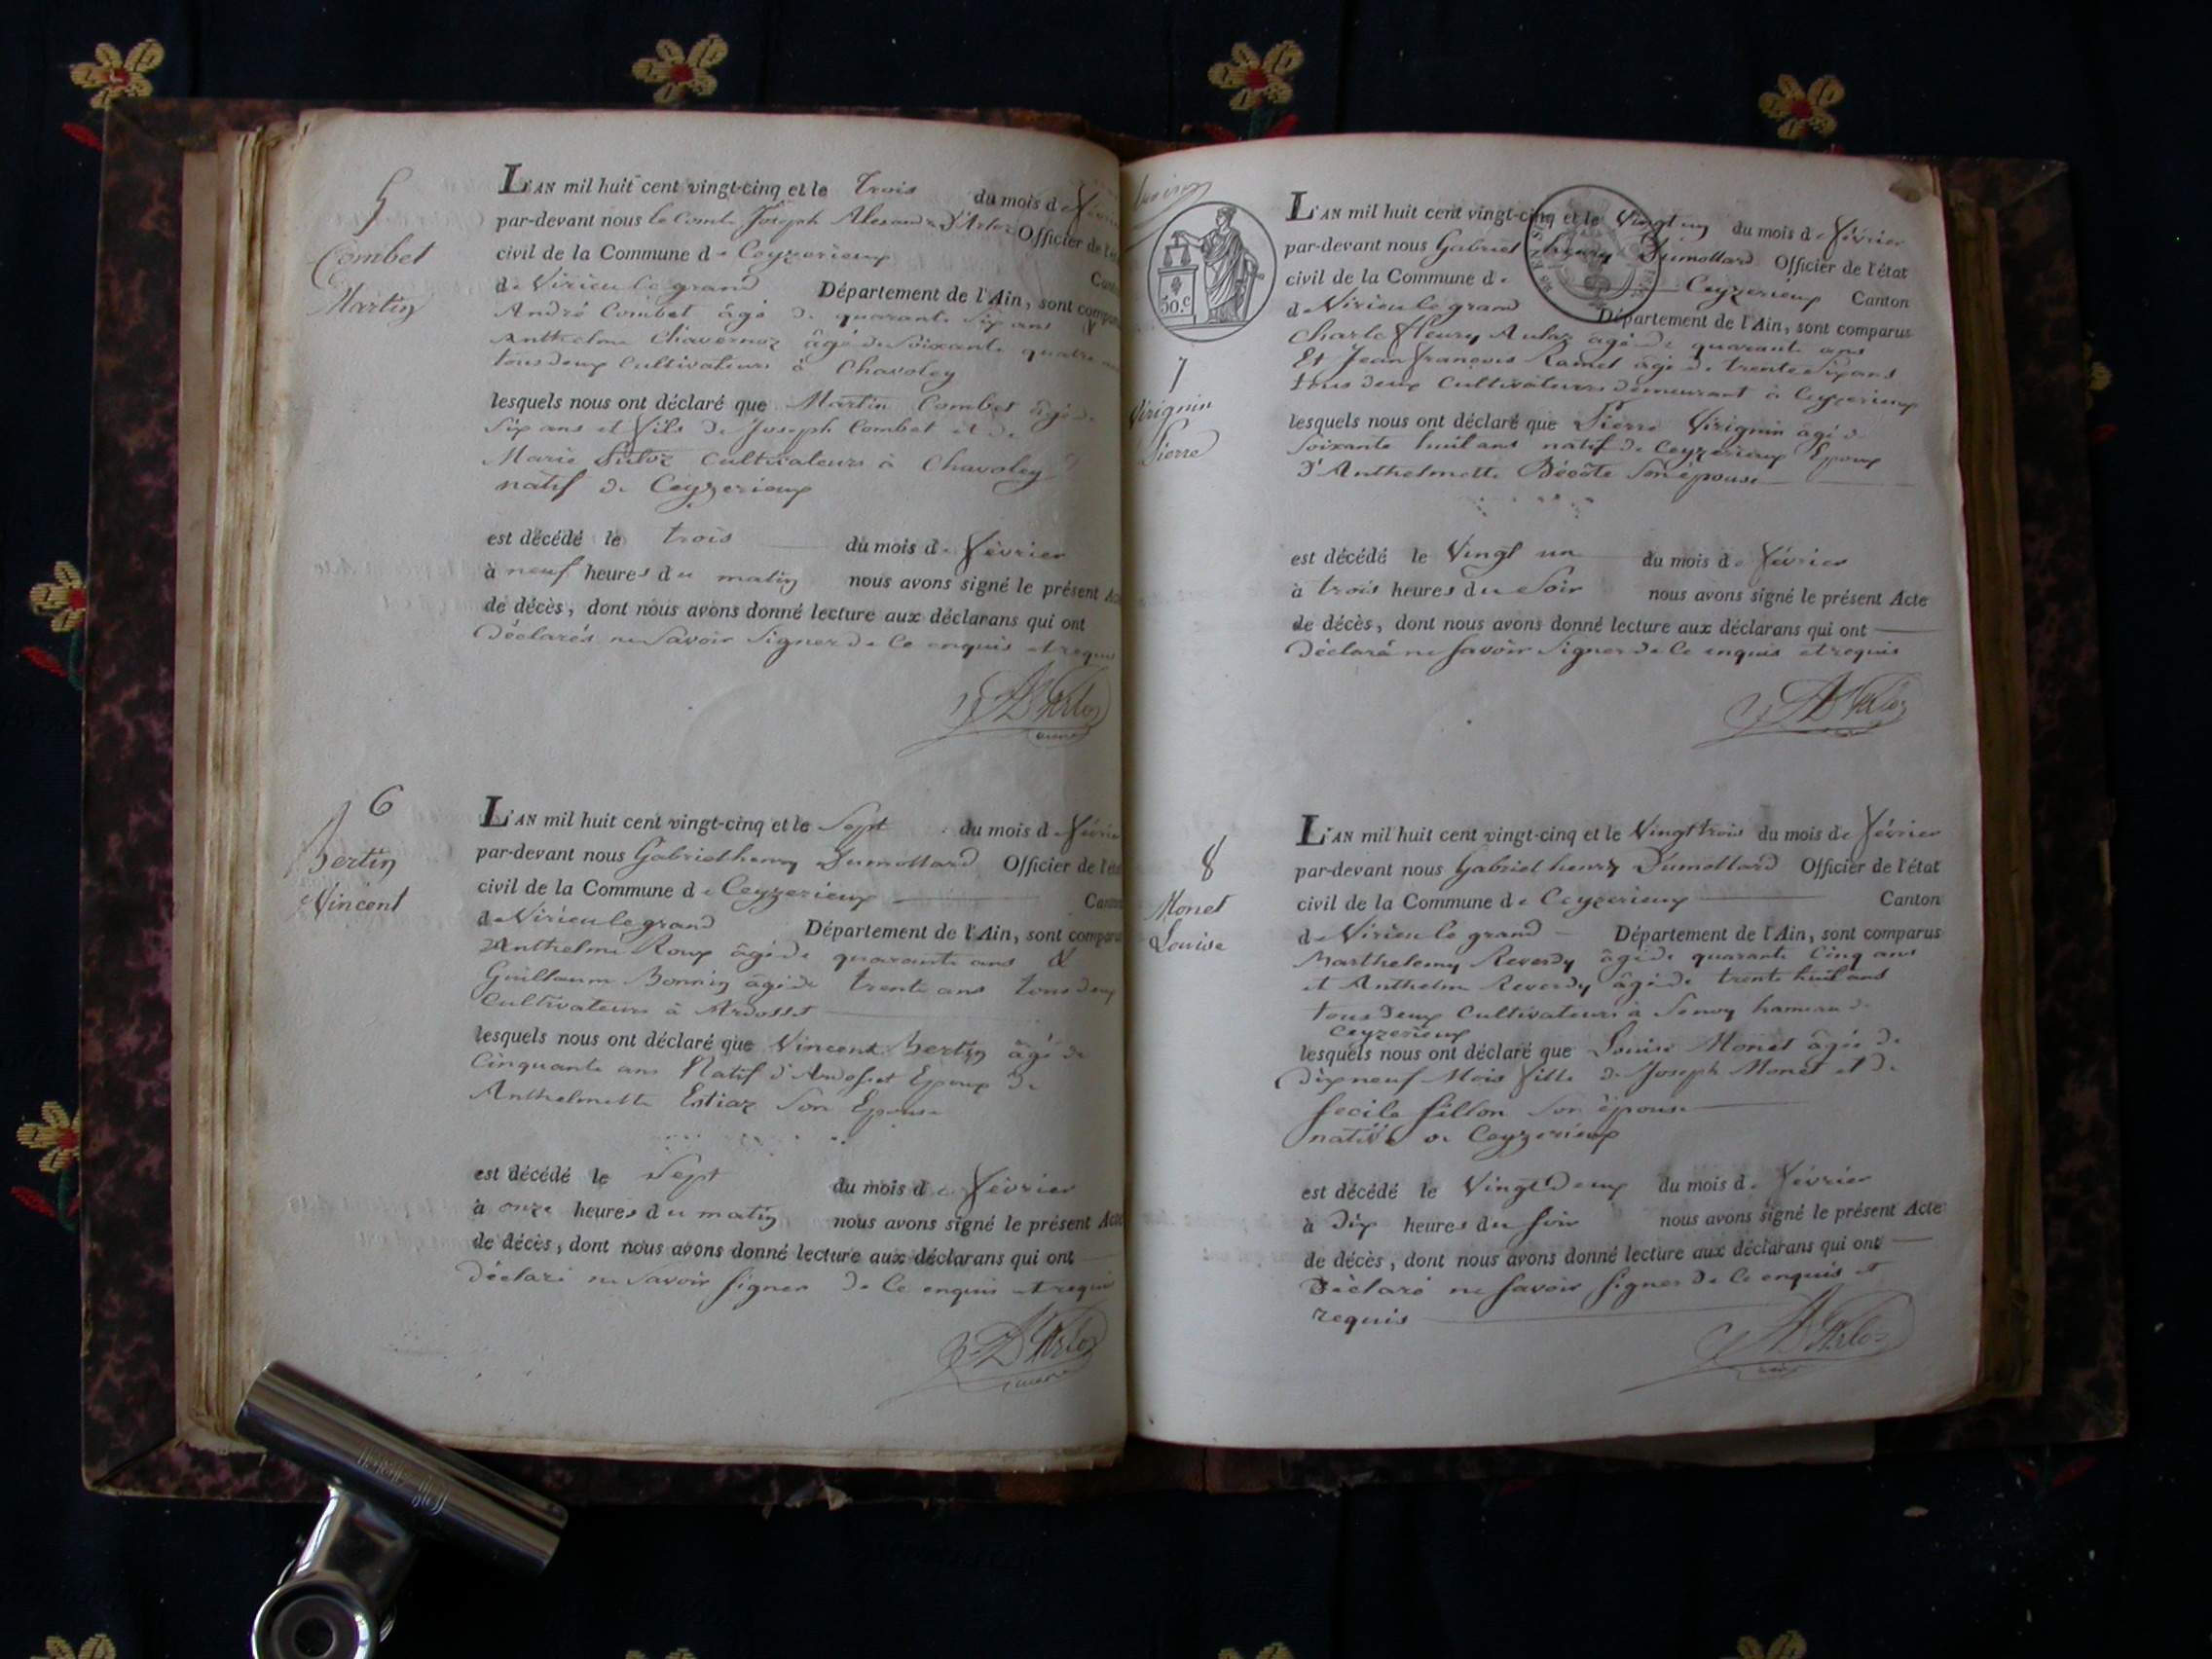 5
Combet
Martin
L'AN mil huit cent vingt-cinq et le trois du mois de février
par-devant nous le Comte Joseph Alexandre D'Arloz Officier de l'ét
civil de la Commune de Ceyzerieux Cant
de Virieu le grand Département de l'Ain, sont compar
André Combet âgé de quarante six ans &
Anthelme Chavernoz âgé de Soixante quatre
tous deux Cultivateurs à Chavoley
lesquels nous ont déclaré que Martin Combet âgé de
Six ans et fils de Joseph Combet et de
Marie cultivateurs à Chavoley
natif de Ceyzerieux
est décédé le trois du mois de février
à neuf heures du matin nous avons signé le présent Acte
de décès, dont nous avons donné lecture aux déclarans qui ont
Déclarés ne Savoir Signer de Ce enquis et requis
6
Bertin
Vincent
L'AN mil huit cent vingt-cinq et le Sept du mois de février
par-devant nous Gabriel henry Dumollard Officier de l'état
civil de la Commune de Ceyzerieux Canton
de Virieu le grand Département de l'Ain, sont comparus
Anthelme Roux âgé de quarante ans &
Guillaume Bonnin âgé de trente ans tous deux
Cultivateurs à Ardosset
lesquels nous ont déclaré que Vincent Bertin âgé de
Cinquante ans Natif d'Ardosset Epoux de
Anthelmette Estiaz Son Epouse
est décédé le Sept du mois de février
à onze heures du matin nous avons signé le présent Acte
de décès, dont nous avons donné lecture aux déclarans qui ont
Déclaré ne Savoir Signer de Ce enquis et requis
50.c
7
Virignin
Pierre
L'AN mil huit cent vingt-cinq et le Vingt un du mois de février
par-devant nous Gabriel henry Dumollard Officier de l'état
civil de la Commune de Ceyzerieux Canton
de Virieu le grand Département de l'Ain, sont comparus
Charle fleury Aulaz âgé de quarante ans
Et Jean françois Ramel âgé de trente six ans
tous deux Cultivateurs demeurant à Ceyzerieux
lesquels nous ont déclaré que Pierre Virignin âgé de
Soixante huit ans natif de Ceyzerieux Epoux
d'Anthelmette Décôte Son épouse
est décédé le Vingt un du mois de février
à trois heures du Soir nous avons signé le présent Acte
de décès, dont nous avons donné lecture aux déclarans qui ont
Déclaré ne Savoir Signer de Ce enquis et requis
8
Monet
Louise
L'AN mil huit cent vingt-cinq et le Vingt trois du mois de février
par-devant nous Gabriel henry Dumollard Officier de l'état
civil de la Commune de Ceyzerieux Canton
de Virieu le grand Département de l'Ain, sont comparus
Barthelemy Reverdy âgé de quarante Cinq ans
et Anthelme Reverdy âgé de trente huit ans
tous deux Cultivateurs à hameau de
Ceyzerieux
lesquels nous ont déclaré que Louise Monet âgée de
Dix neuf Mois fille de Joseph Monet et de
fecile fillon Son épouse
native de Ceyzerieux
est décédé le Vingt Deux du mois de février
à Dix heures du Soir nous avons signé le présent Acte
de décès, dont nous avons donné lecture aux déclarans qui ont
Déclaré ne Savoir Signer de Ce enquis et
requis